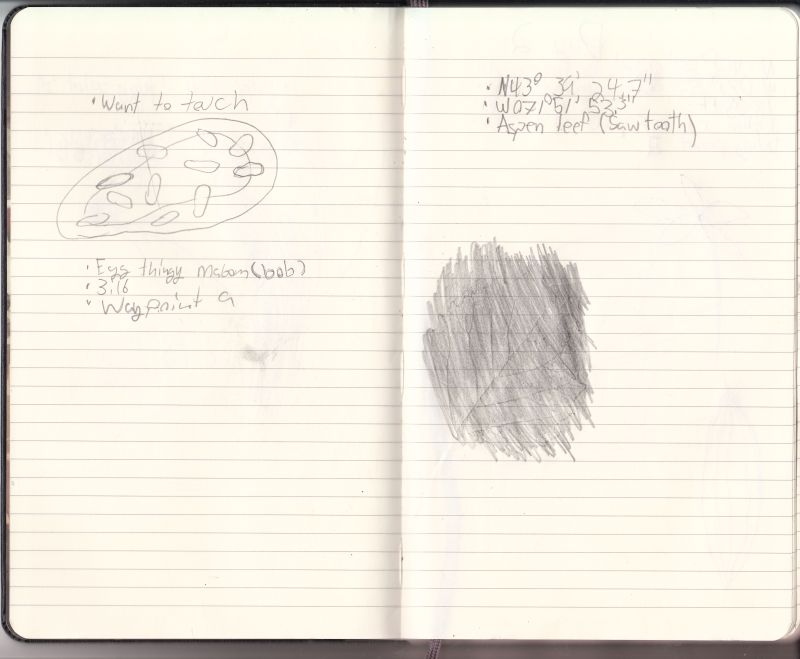 • Want to touch
• Egg thingy (bob)
• 3:16
• Waypoint 9
• N43° 34' 24.7"
• W071° 51' 52.3"
• Aspen leef (Sawtooth)